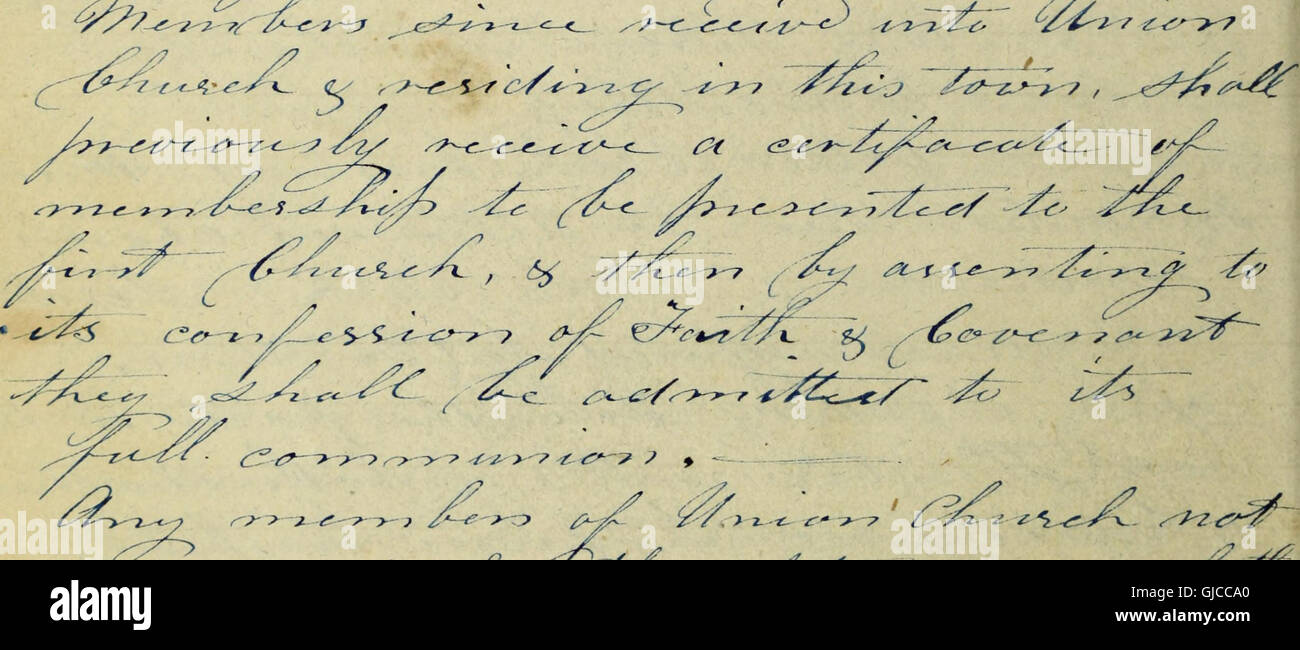 Members since receive into Union
Church & residing in this town, shall
previously receive a certifacate of
membership to be presented to the
first Church, & then by assenting to
its confession of Faith & Covenant
they shall be admitted to its
full communion.
Any members of Union Church not
alamy
Image ID: GJCCA0
www.alamy.com